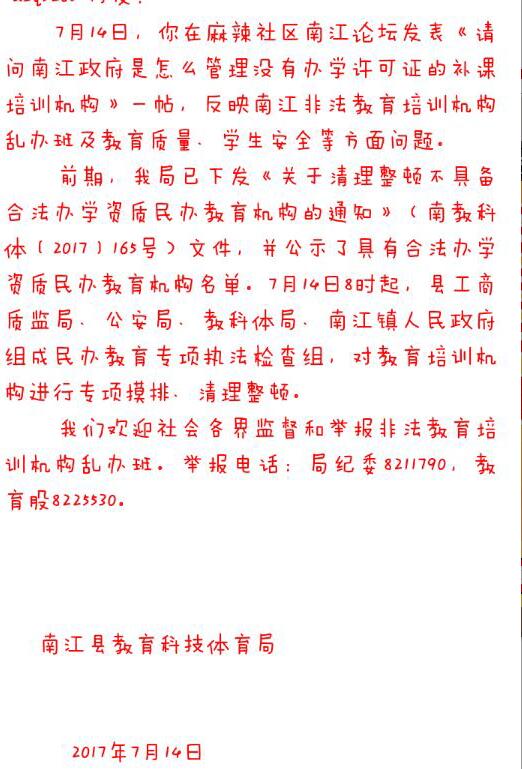 7月14日，你在麻辣社区南江论坛发表《请
问南江政府是怎么管理没有办学许可证的补课
培训机构》一帖，反映南江非法教育培训机构
乱办班及教育质量、学生安全等方面问题。
前期，我局已下发《关于清理整顿不具备
合法办学资质民办教育机构的通知》（南教科
体〔2017〕165号）文件，并公示了具有合法办学
资质民办教育机构名单。7月14日8时起，县工商
质监局、公安局、教科体局、南江镇人民政府
组成民办教育专项执法检查组，对教育培训机
构进行专项摸排、清理整顿。
我们欢迎社会各界监督和举报非法教育培
训机构乱办班。举报电话：局纪委8211790，教
育股8225530。
南江县教育科技体育局
2017年7月14日